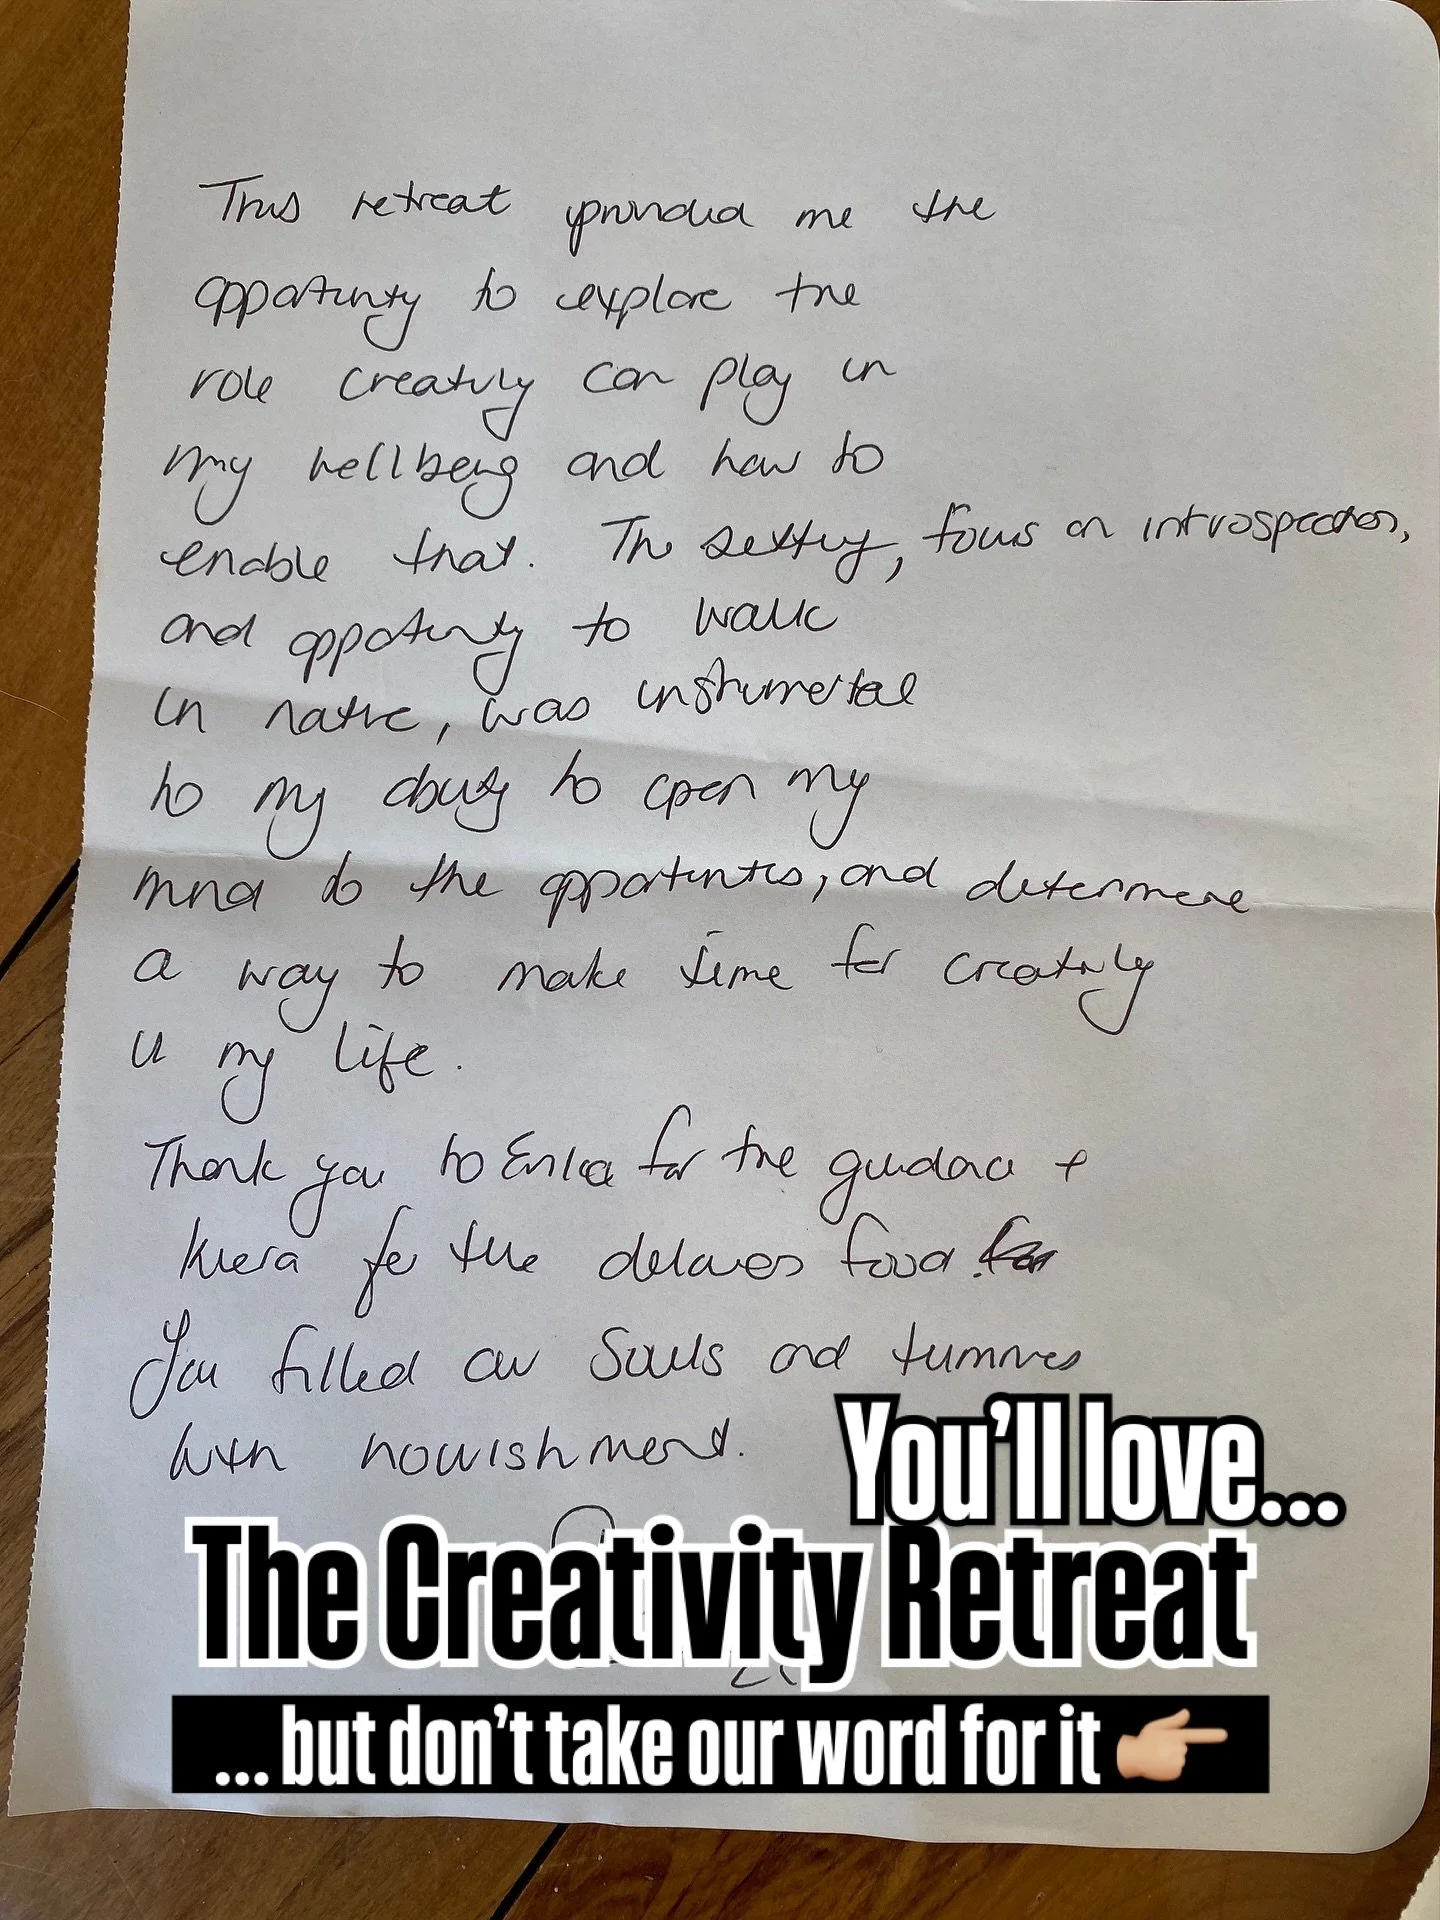 This retreat provided me the
opportunity to explore the
role creativity can play in
my wellbeing and how to
enable that. The setting, focus on introspection,
and opportunity to walk
in nature, was instrumental
to my ability to open my
mind to the opportunities, and determine
a way to make time for creativity
in my life.
Thank you to Erika for the guidance +
Kiera for the delicious food.
You filled our souls and tummies
with nourishment.
You'll love...
The Creativity Retreat
... but don't take our word for it 👉🏼